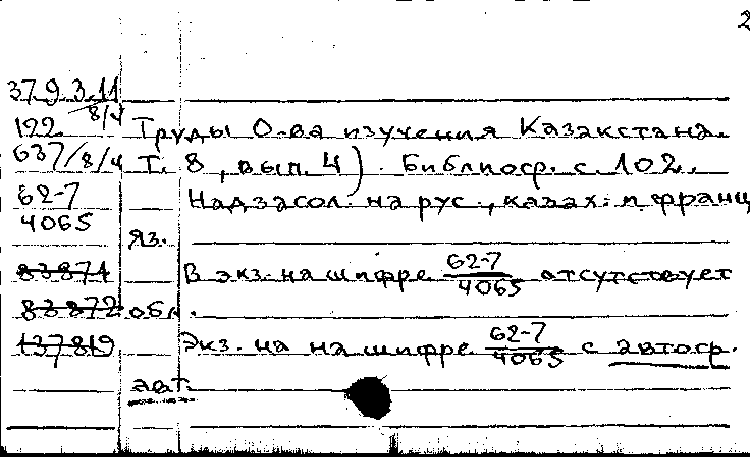 2
37.9.3.11
8/4
122. Труды О-ва изучения Казакстана.
637/8/4 Т. 8, вып. 4). Библиогр. с. 102.
62-7 Надзагол. на рус., казах. и франц
4065
яз.
83871 В экз. на шифре 62-7/4065 отсутствует
83872 обл.
137819 Экз. на на шифре 62-7/4065 с автогр.
авт.